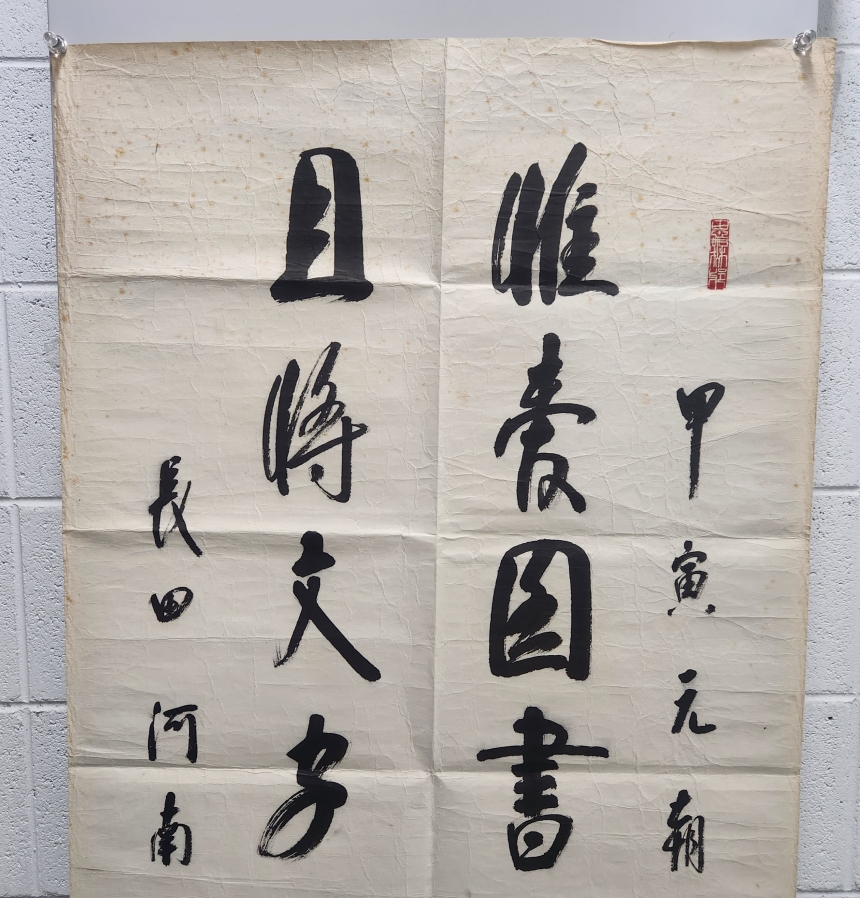 甲寅元朝
惟愛圖書
且將文字
長田河南